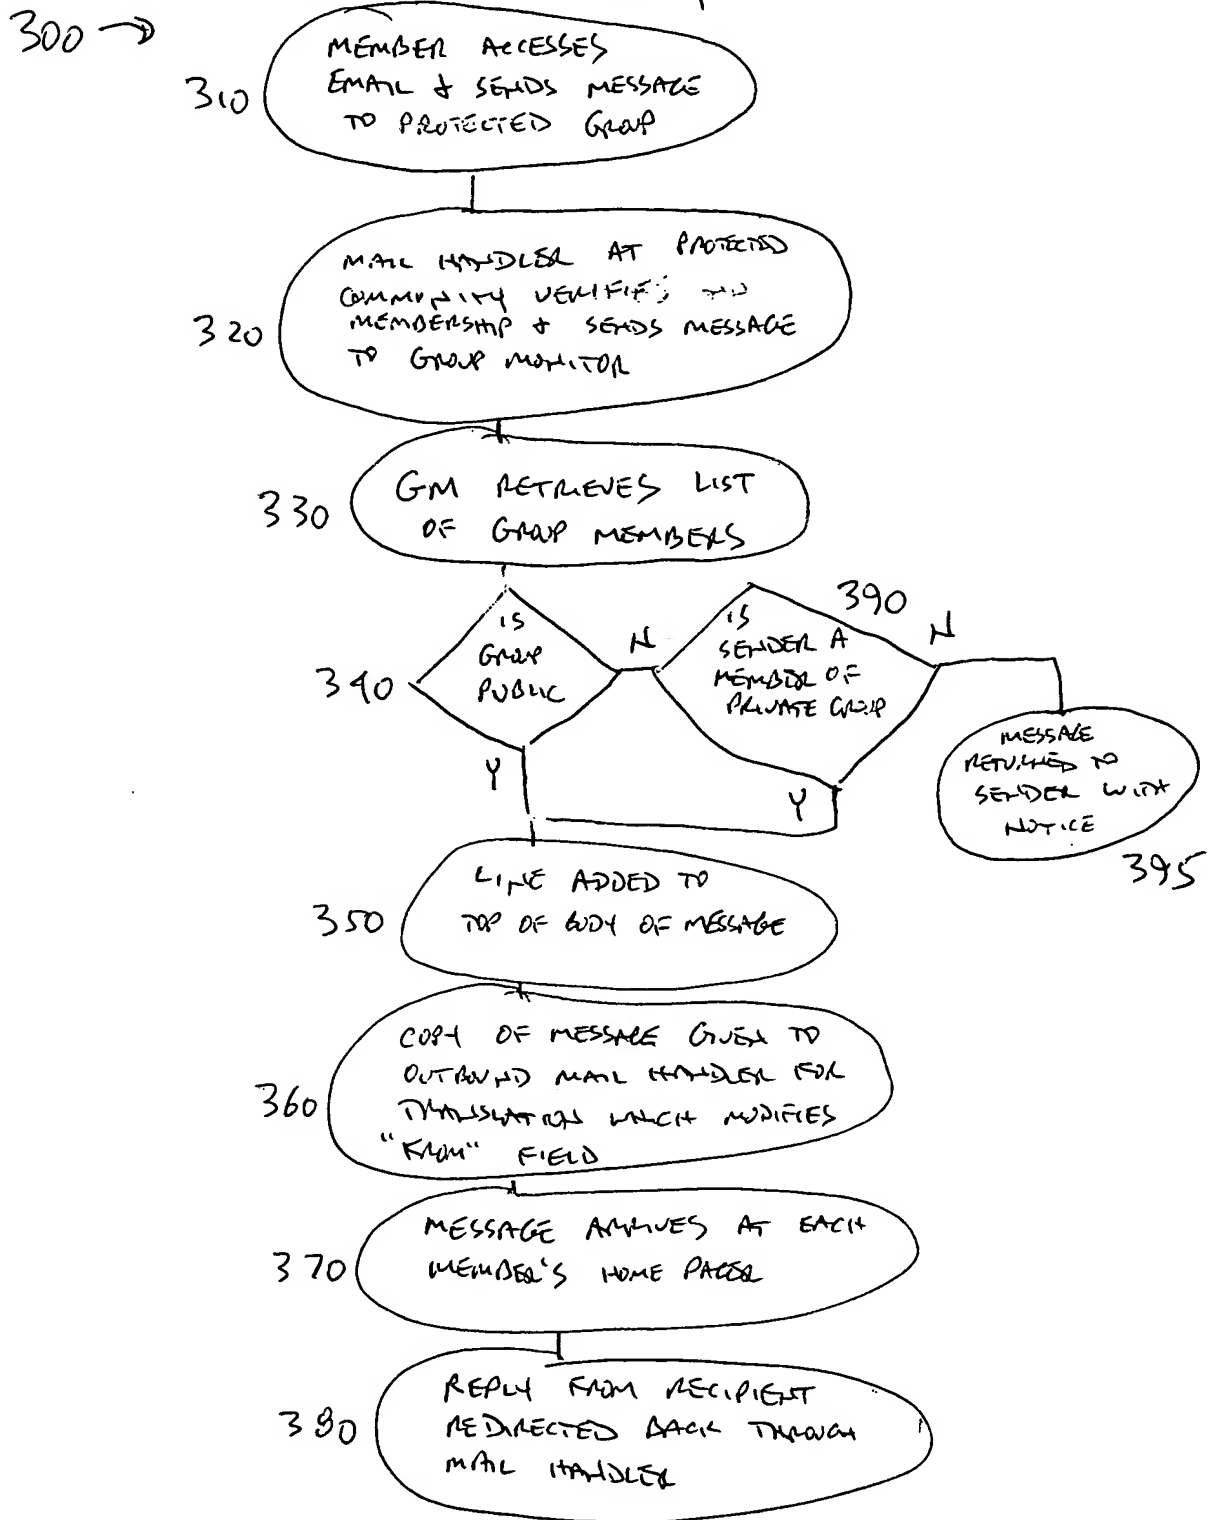 300 →
310
MEMBER ACCESSES
EMAIL & SENDS MESSAGE
TO PROTECTED GROUP
320
MAIL HANDLER AT PROTECTED
COMMUNITY VERIFIES
MEMBERSHIP & SENDS MESSAGE
TO GROUP MONITOR
330
GM RETRIEVES LIST
OF GROUP MEMBERS
340
IS
GROUP
PUBLIC
N
Y
390
IS
SENDER A
MEMBER OF
PRIVATE GROUP
N
Y
MESSAGE
RETURNED TO
SENDER WITH
NOTICE
395
350
LINE ADDED TO
TOP OF BODY OF MESSAGE
360
COPY OF MESSAGE GIVEN TO
OUTBOUND MAIL HANDLER FOR
TRANSLATION WHICH MODIFIES
"FROM" FIELD
370
MESSAGE ARRIVES AT EACH
MEMBER'S HOME
380
REPLY FROM RECIPIENT
REDIRECTED BACK THROUGH
MAIL HANDLER